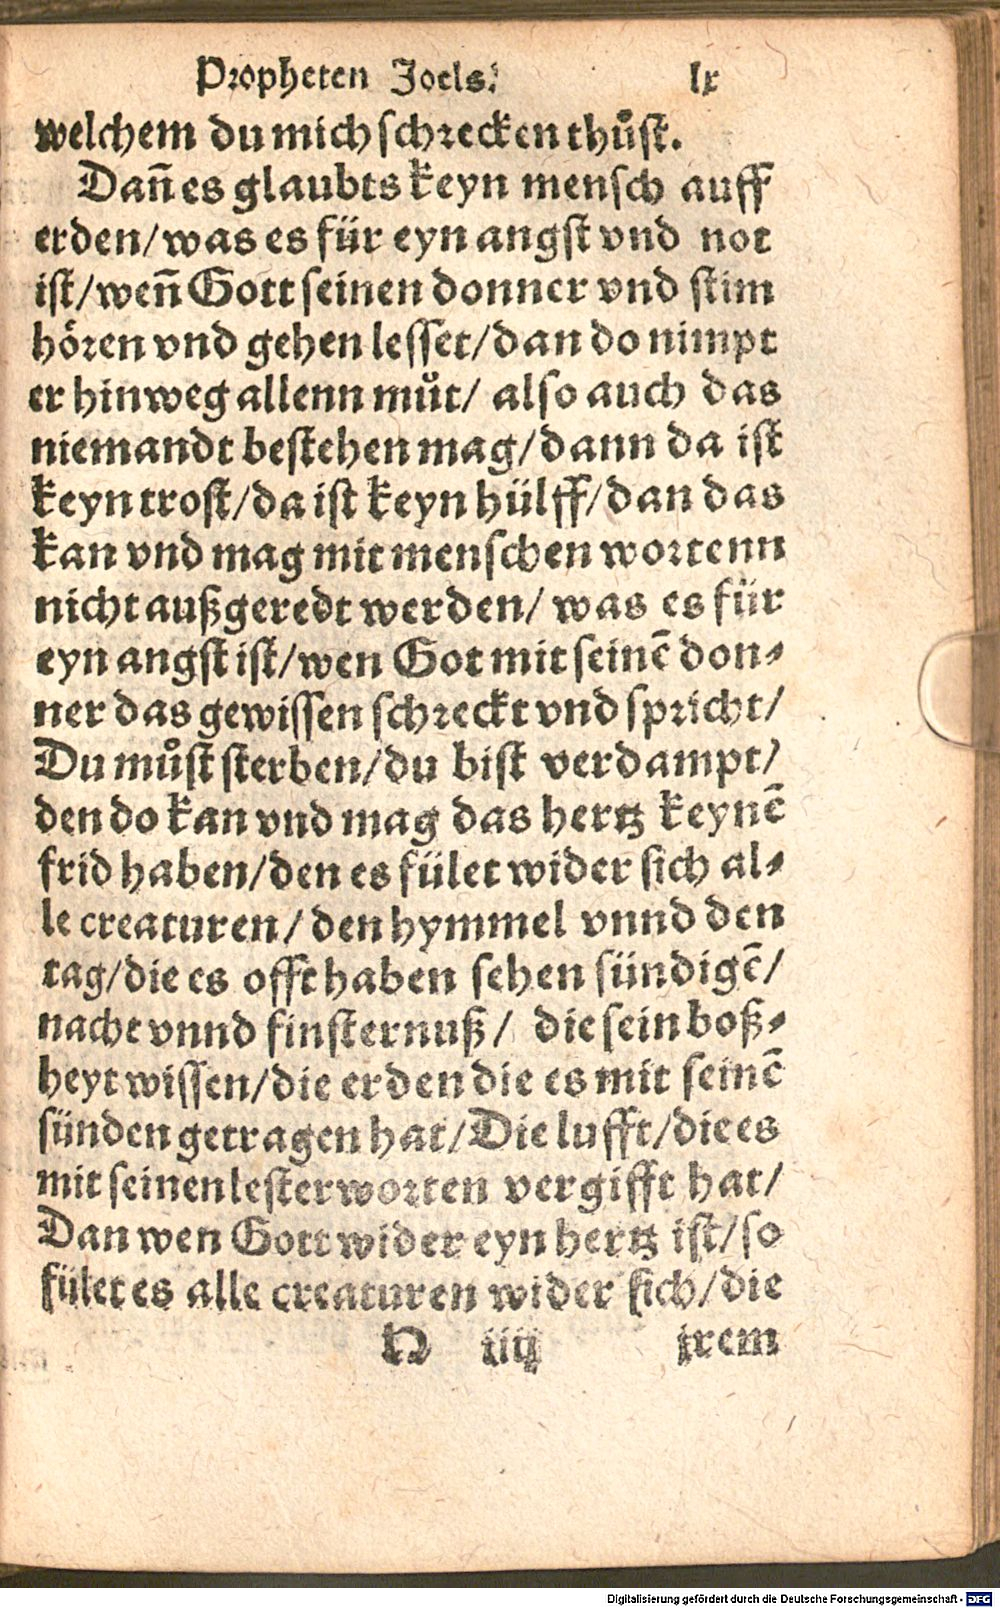 Propheten Joels. lx
welchem du mich schrecken thůst.
Dañ es glaubts keyn mensch auff
erden/was es für eyn angst vnd not
ist/weñ Gott seinen donner vnd stim
hören vnd gehen lesset/dan do nimpt
er hinweg allenn můt/ also auch das
niemandt bestehen mag/dann da ist
keyn trost/da ist keyn hülff/dan das
kan vnd mag mit menschen wortenn
nicht außgeredt werden/ was es für
eyn angst ist/wen Got mit seinē don-
ner das gewissen schreckt vnd spricht/
Du můst sterben/du bist verdampt/
den do kan vnd mag das hertz keynē
frid haben/den es fület wider sich al-
le creaturen/den hymmel vnnd den
tag/die es offt haben sehen sündigē/
nacht vnnd finsternuß/ die sein boß-
heyt wissen/die erden die es mit seinē
sünden getragen hat/Die lufft/die es
mit seinen lesterworten vergifft hat/
Dan wen Gott wider eyn hertz ist/so
fület es alle creaturen wider sich/die
H iiij jrem
Digitalisierung gefördert durch die Deutsche Forschungsgemeinschaft - DFG